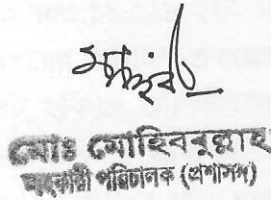 মোঃ মোহিববুল্লাহ
সহকারী পরিচালক (প্রশাসন)